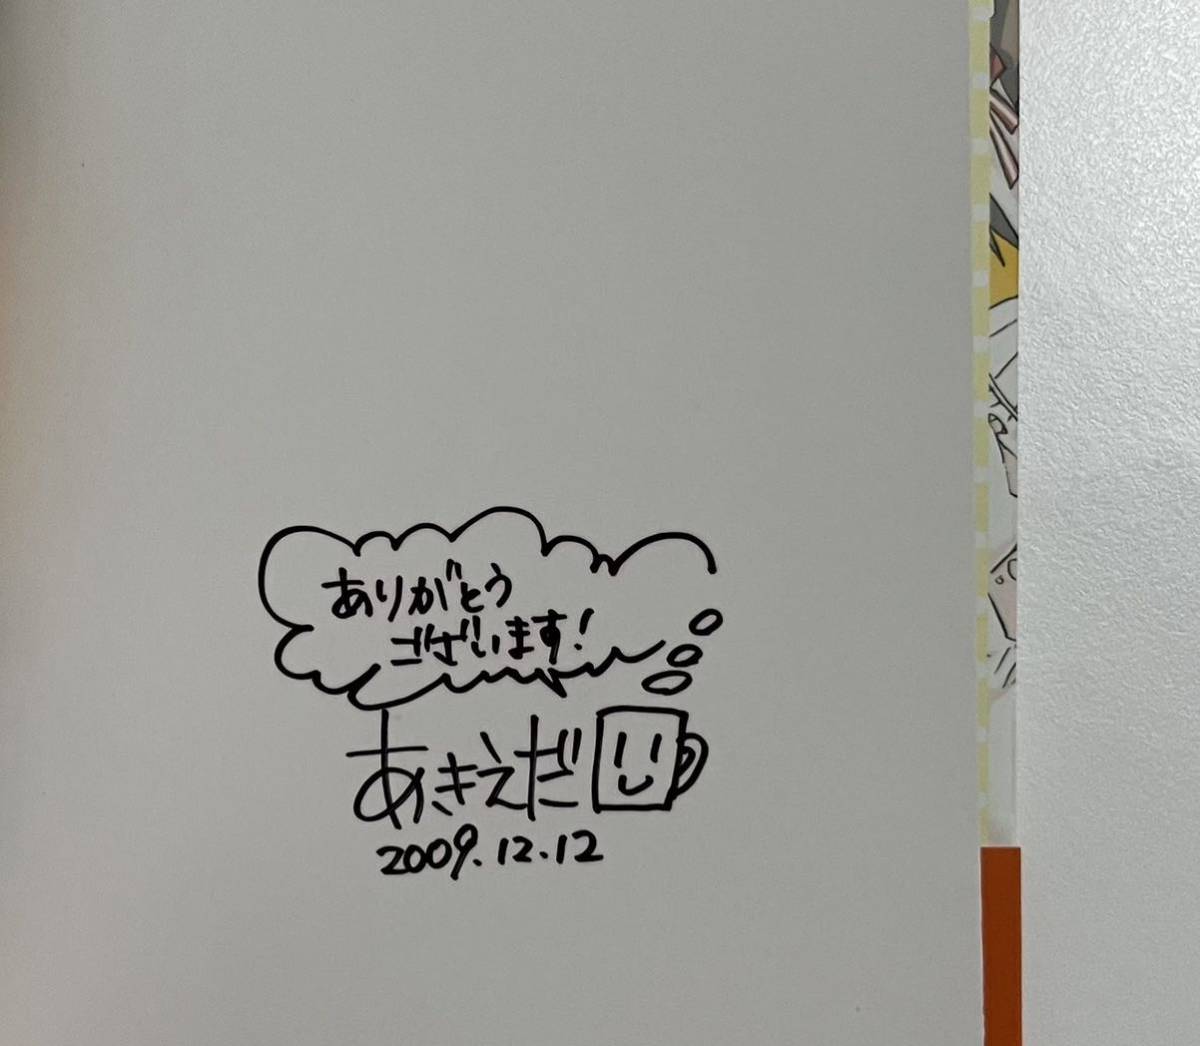 ありがとう
ございます!
あきえだ
2009.12.12